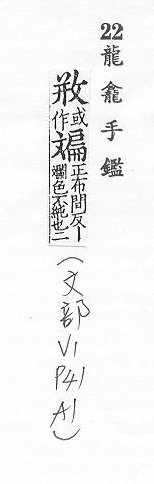 22 龍龕手鑑
或作斒正布間反丨斕色不純也二
(文部 V1 P41 A1)